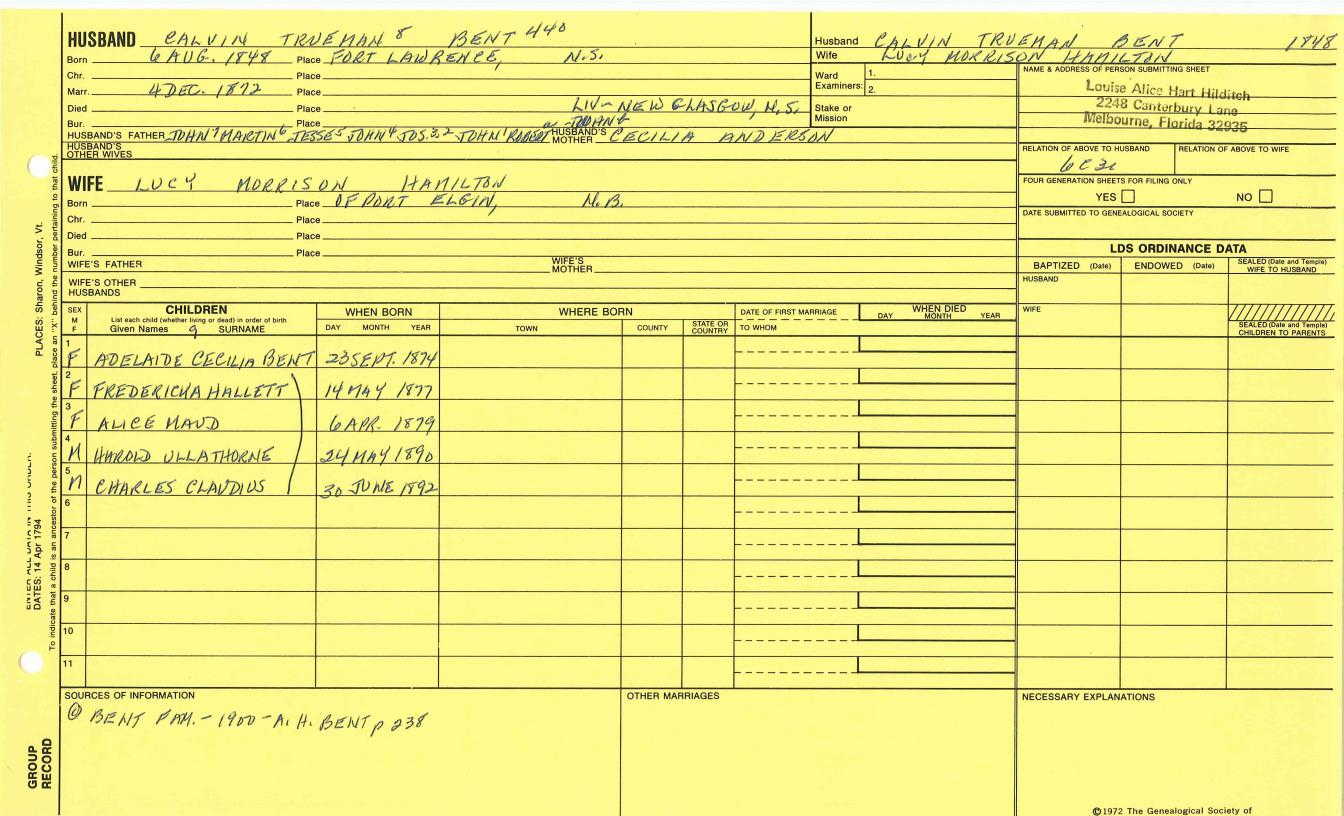 HUSBAND CALVIN TRUEMAN 8 BENT 440
Born 6 AUG. 1848 Place FORT LAWRENCE, N.S.
Chr. Place
Marr. 4 DEC. 1872 Place
Died Place LIV - NEW GLASGOW, N.S.
Bur. Place
HUSBAND'S FATHER JOHN 7 MARTIN 6 JESSE 5 JOHN 4 JOS. 3, 2 JOHN 1 ROBERT HUSBAND'S MOTHER CECILIA ANDERSON
HUSBAND'S OTHER WIVES
WIFE LUCY MORRISON HAMILTON
Born Place OF PORT ELGIN, N.B.
Chr. Place
Died Place
Bur. Place
WIFE'S FATHER WIFE'S MOTHER
WIFE'S OTHER HUSBANDS
Husband CALVIN TRUEMAN BENT 1848
Wife LUCY MORRISON HAMILTON
Ward Examiners: 1. 2.
Stake or Mission
NAME & ADDRESS OF PERSON SUBMITTING SHEET
Louise Alice Hart Hilditch
2248 Canterbury Lane
Melbourne, Florida 32935
RELATION OF ABOVE TO HUSBAND RELATION OF ABOVE TO WIFE
FOUR GENERATION SHEETS FOR FILING ONLY
YES NO
DATE SUBMITTED TO GENEALOGICAL SOCIETY
LDS ORDINANCE DATA
BAPTIZED (Date) ENDOWED (Date) SEALED (Date and Temple) WIFE TO HUSBAND
HUSBAND
WIFE
SEALED (Date and Temple) CHILDREN TO PARENTS
SEX M F
CHILDREN
List each child (whether living or dead) in order of birth
Given Names 9 SURNAME
WHEN BORN
DAY MONTH YEAR
WHERE BORN
TOWN COUNTY STATE OR COUNTRY
DATE OF FIRST MARRIAGE
TO WHOM
WHEN DIED
DAY MONTH YEAR
1 F ADELAIDE CECILIA BENT 23 SEPT. 1874
2 F FREDERICKA HALLETT 14 MAY 1877
3 F ALICE MAUD 6 APR. 1879
4 M HAROLD ULLATHORNE 24 MAY 1890
5 M CHARLES CLAUDIUS 30 JUNE 1892
6
7
8
9
10
11
SOURCES OF INFORMATION
@ BENT FAM. - 1900 - A. H. BENT p 238
OTHER MARRIAGES
NECESSARY EXPLANATIONS
©1972 The Genealogical Society of
PLACES: Sharon, Windsor, Vt.
DATES: 14 Apr 1794
To indicate that a child is an ancestor of the person submitting the sheet, place an "X" behind the number pertaining to that child.
GROUP RECORD